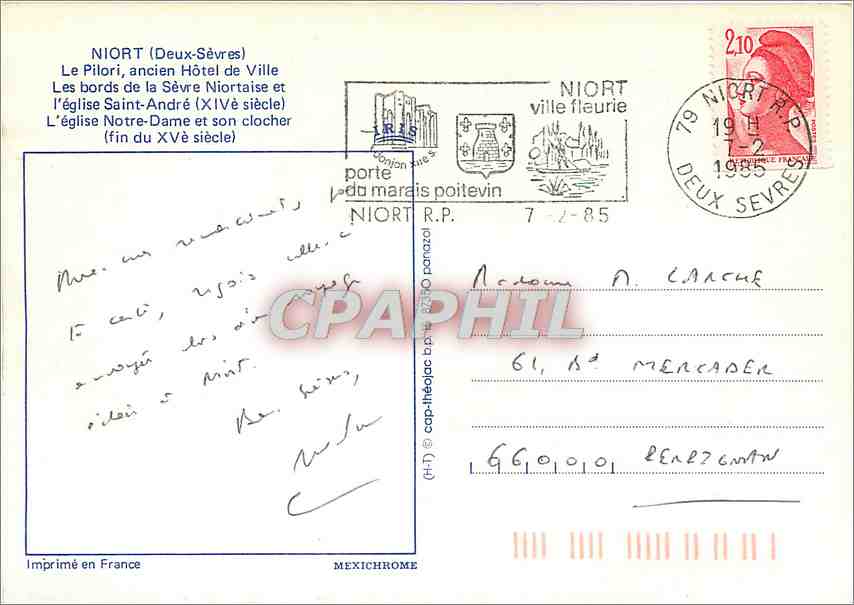 NIORT (Deux-Sèvres)
Le Pilori, ancien Hôtel de Ville
Les bords de la Sèvre Niortaise et
l'église Saint-André (XIVè siècle)
L'église Notre-Dame et son clocher
(fin du XVè siècle)
IRIS
donjon XIIe s.
NIORT
ville fleurie
porte
du marais poitevin
NIORT R.P. 7-2-85
2,10
RÉPUBLIQUE FRANÇAISE
79 NIORT R.P.
19 H
7-2
1985
DEUX SEVRES
Avec mes remerciements pour
ta carte, reçois celle-ci
envoyée lors d'un voyage
éclair à Niort.
CPAPHIL
(H-T) © cap-théojac b.p. 16 87350 panazol
Madame M. LARCHE
61, Bd MERCADER
66000 PERPIGNAN
Imprimé en France
MEXICHROME